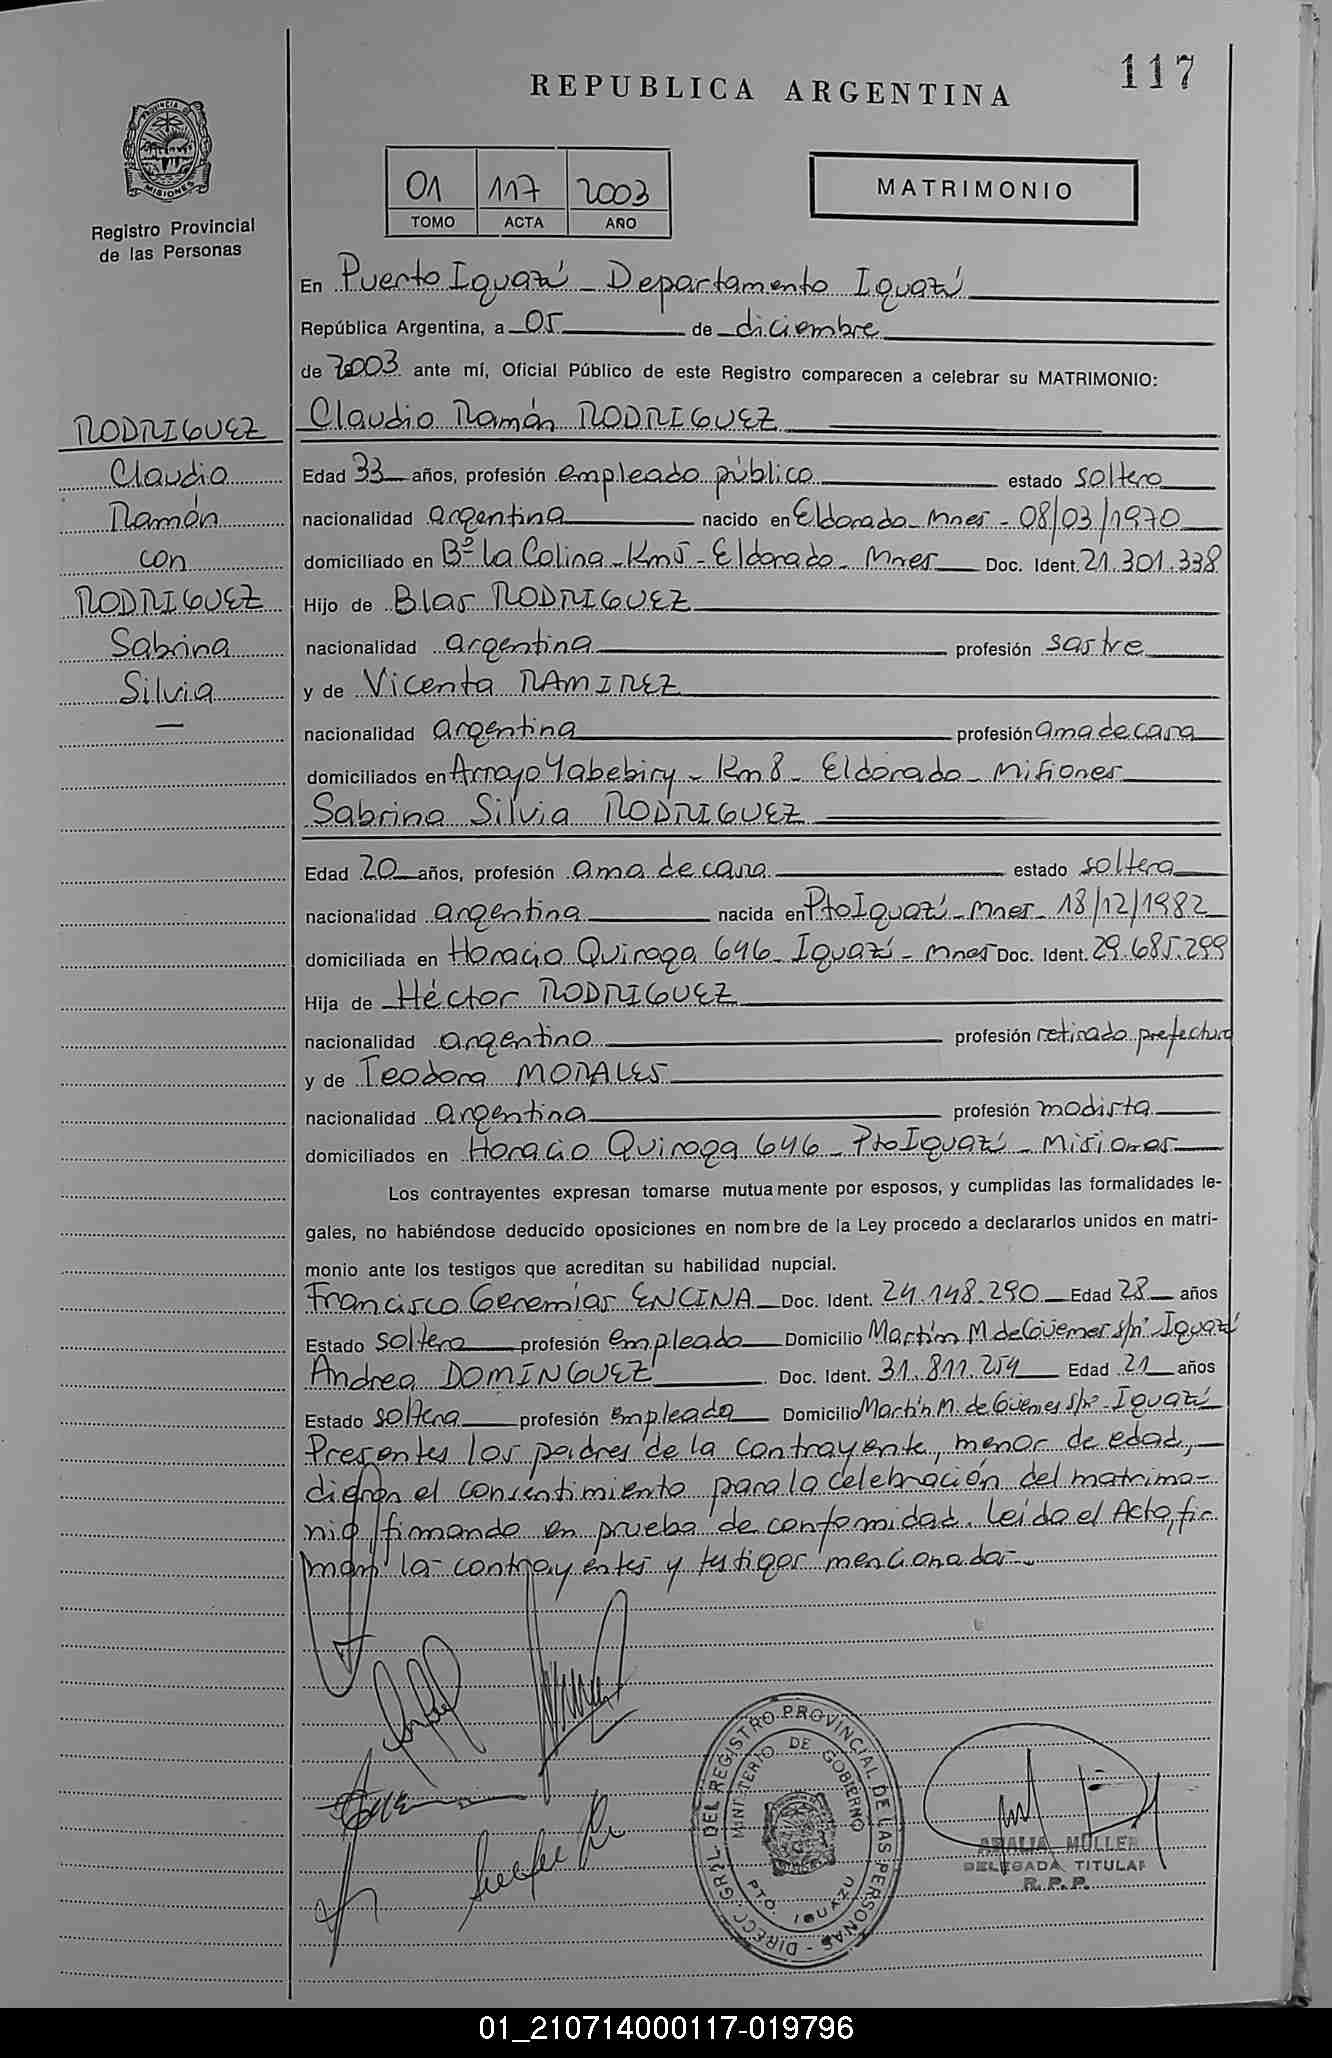 117
REPUBLICA ARGENTINA
PROVINCIA DE
MISIONES
Registro Provincial
de las Personas
01 117 2003
TOMO ACTA AÑO
MATRIMONIO
En Puerto Iguazú - Departamento Iguazú
República Argentina, a 05 de diciembre
de 2003 ante mí, Oficial Público de este Registro comparecen a celebrar su MATRIMONIO:
RODRIGUEZ
Claudio
Ramón
con
RODRIGUEZ
Sabrina
Silvia
Claudio Ramón RODRIGUEZ
Edad 33 años, profesión empleado público estado soltero
nacionalidad argentina nacido en Eldorado - Mnes - 08/03/1970
domiciliado en Bº La Colina - Km 5 - Eldorado - Mnes Doc. Ident. 21.301.338
Hijo de Blas RODRIGUEZ
nacionalidad argentina profesión sastre
y de Vicenta RAMIREZ
nacionalidad argentina profesión ama de casa
domiciliados en Arroyo Yabebiry - Km 8 - Eldorado - Misiones
Sabrina Silvia RODRIGUEZ
Edad 20 años, profesión ama de casa estado soltera
nacionalidad argentina nacida en Pto Iguazú - Mnes - 18/12/1982
domiciliada en Horacio Quiroga 646 - Iguazú - Mnes Doc. Ident. 29.685.299
Hija de Héctor RODRIGUEZ
nacionalidad argentino profesión retirado prefectura
y de Teodora MORALES
nacionalidad argentina profesión modista
domiciliados en Horacio Quiroga 646 - Pto Iguazú - Misiones
Los contrayentes expresan tomarse mutuamente por esposos, y cumplidas las formalidades le-
gales, no habiéndose deducido oposiciones en nombre de la Ley procedo a declararlos unidos en matri-
monio ante los testigos que acreditan su habilidad nupcial.
Francisco Geremías ENCINA Doc. Ident. 24.148.290 Edad 28 años
Estado soltero profesión empleado Domicilio Martín M. de Güemes s/nº Iguazú
Andrea DOMINGUEZ Doc. Ident. 31.811.254 Edad 21 años
Estado soltera profesión empleada Domicilio Martín M. de Güemes s/nº - Iguazú
Presentes los padres de la contrayente, menor de edad,
dieron el consentimiento para la celebración del matrimo-
nio firmando en prueba de conformidad. Leído el Acta, fir-
man los contrayentes y testigos mencionados.
DIRECC. GRAL DEL REGISTRO PROVINCIAL DE LAS PERSONAS -
MINISTERIO DE GOBIERNO
PTO. IGUAZU
MÜLLER
DELEGADA TITULAR
R.P.P.
01_210714000117-019796